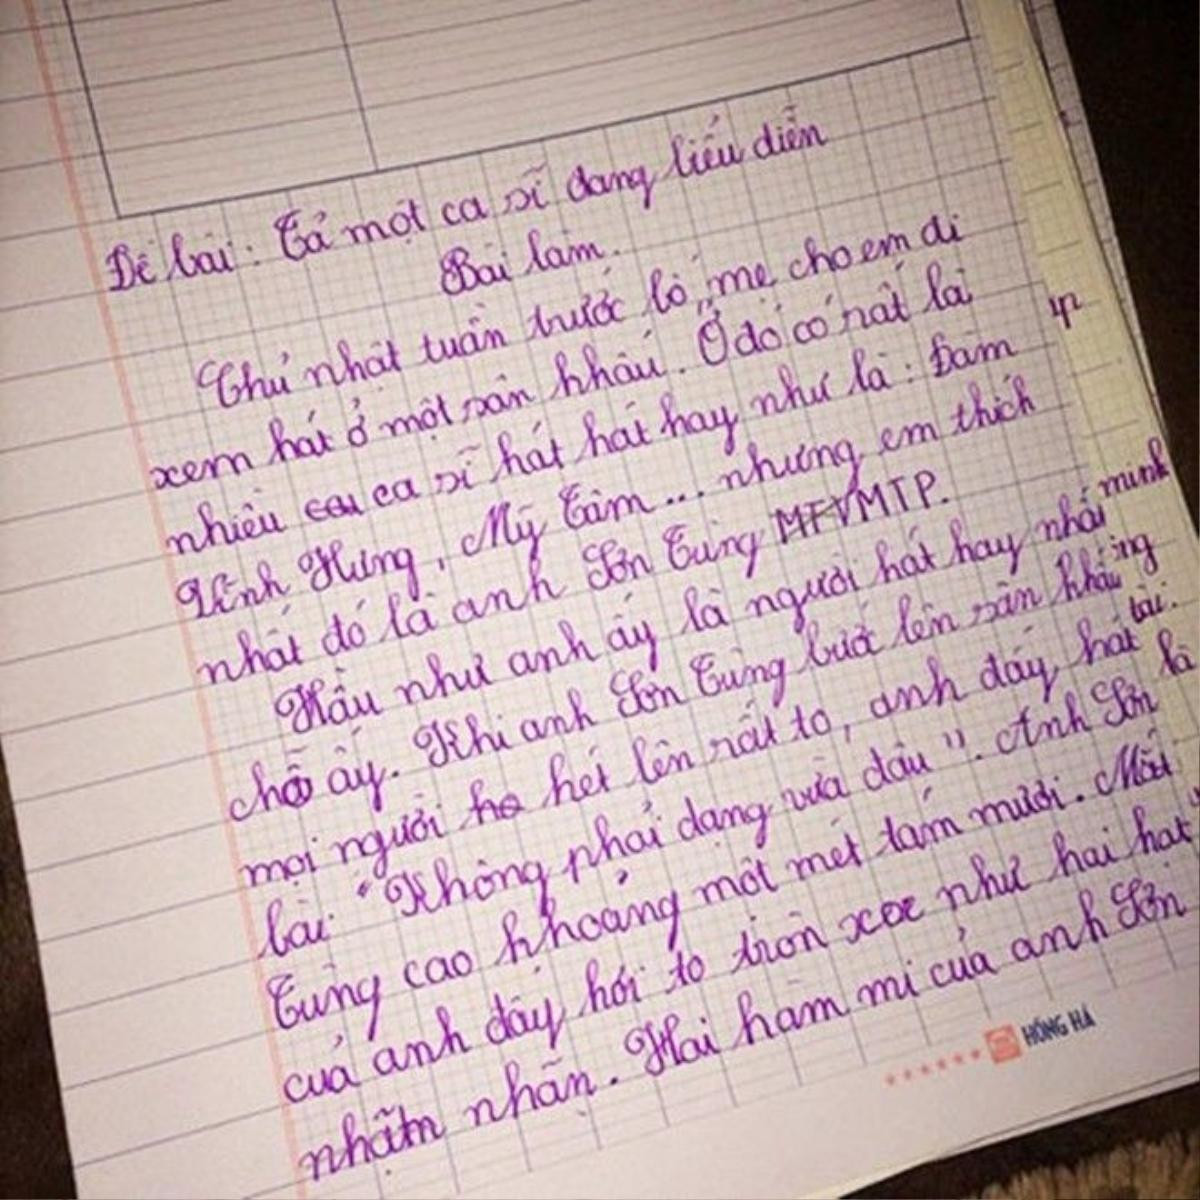 Đề bài: Tả một ca sĩ đang biểu diễn
Bài làm.
Chủ nhật tuần trước bố, mẹ cho em đi
xem hát ở một sân khấu. Ở đó có rất là
nhiều ca sĩ hát hát hay như là: Đàm
Vĩnh Hưng, Mỹ Tâm... nhưng em thích
nhất đó là anh Sơn Tùng MTP.
Hầu như anh ấy là người hát hay nhất
chỗ ấy. Khi anh Sơn Tùng bướt lên sân khấu
mọi người hét lên rất to, anh đấy hát
bài "Không phải dạng vừa đâu". Anh Sơn
Tùng cao khoảng một mét tám mươi. Mắt
của anh đấy hơi to tròn xoe như hai hạt
nhãn. Hai hàm mi của anh Sơn
HỒNG HÀ